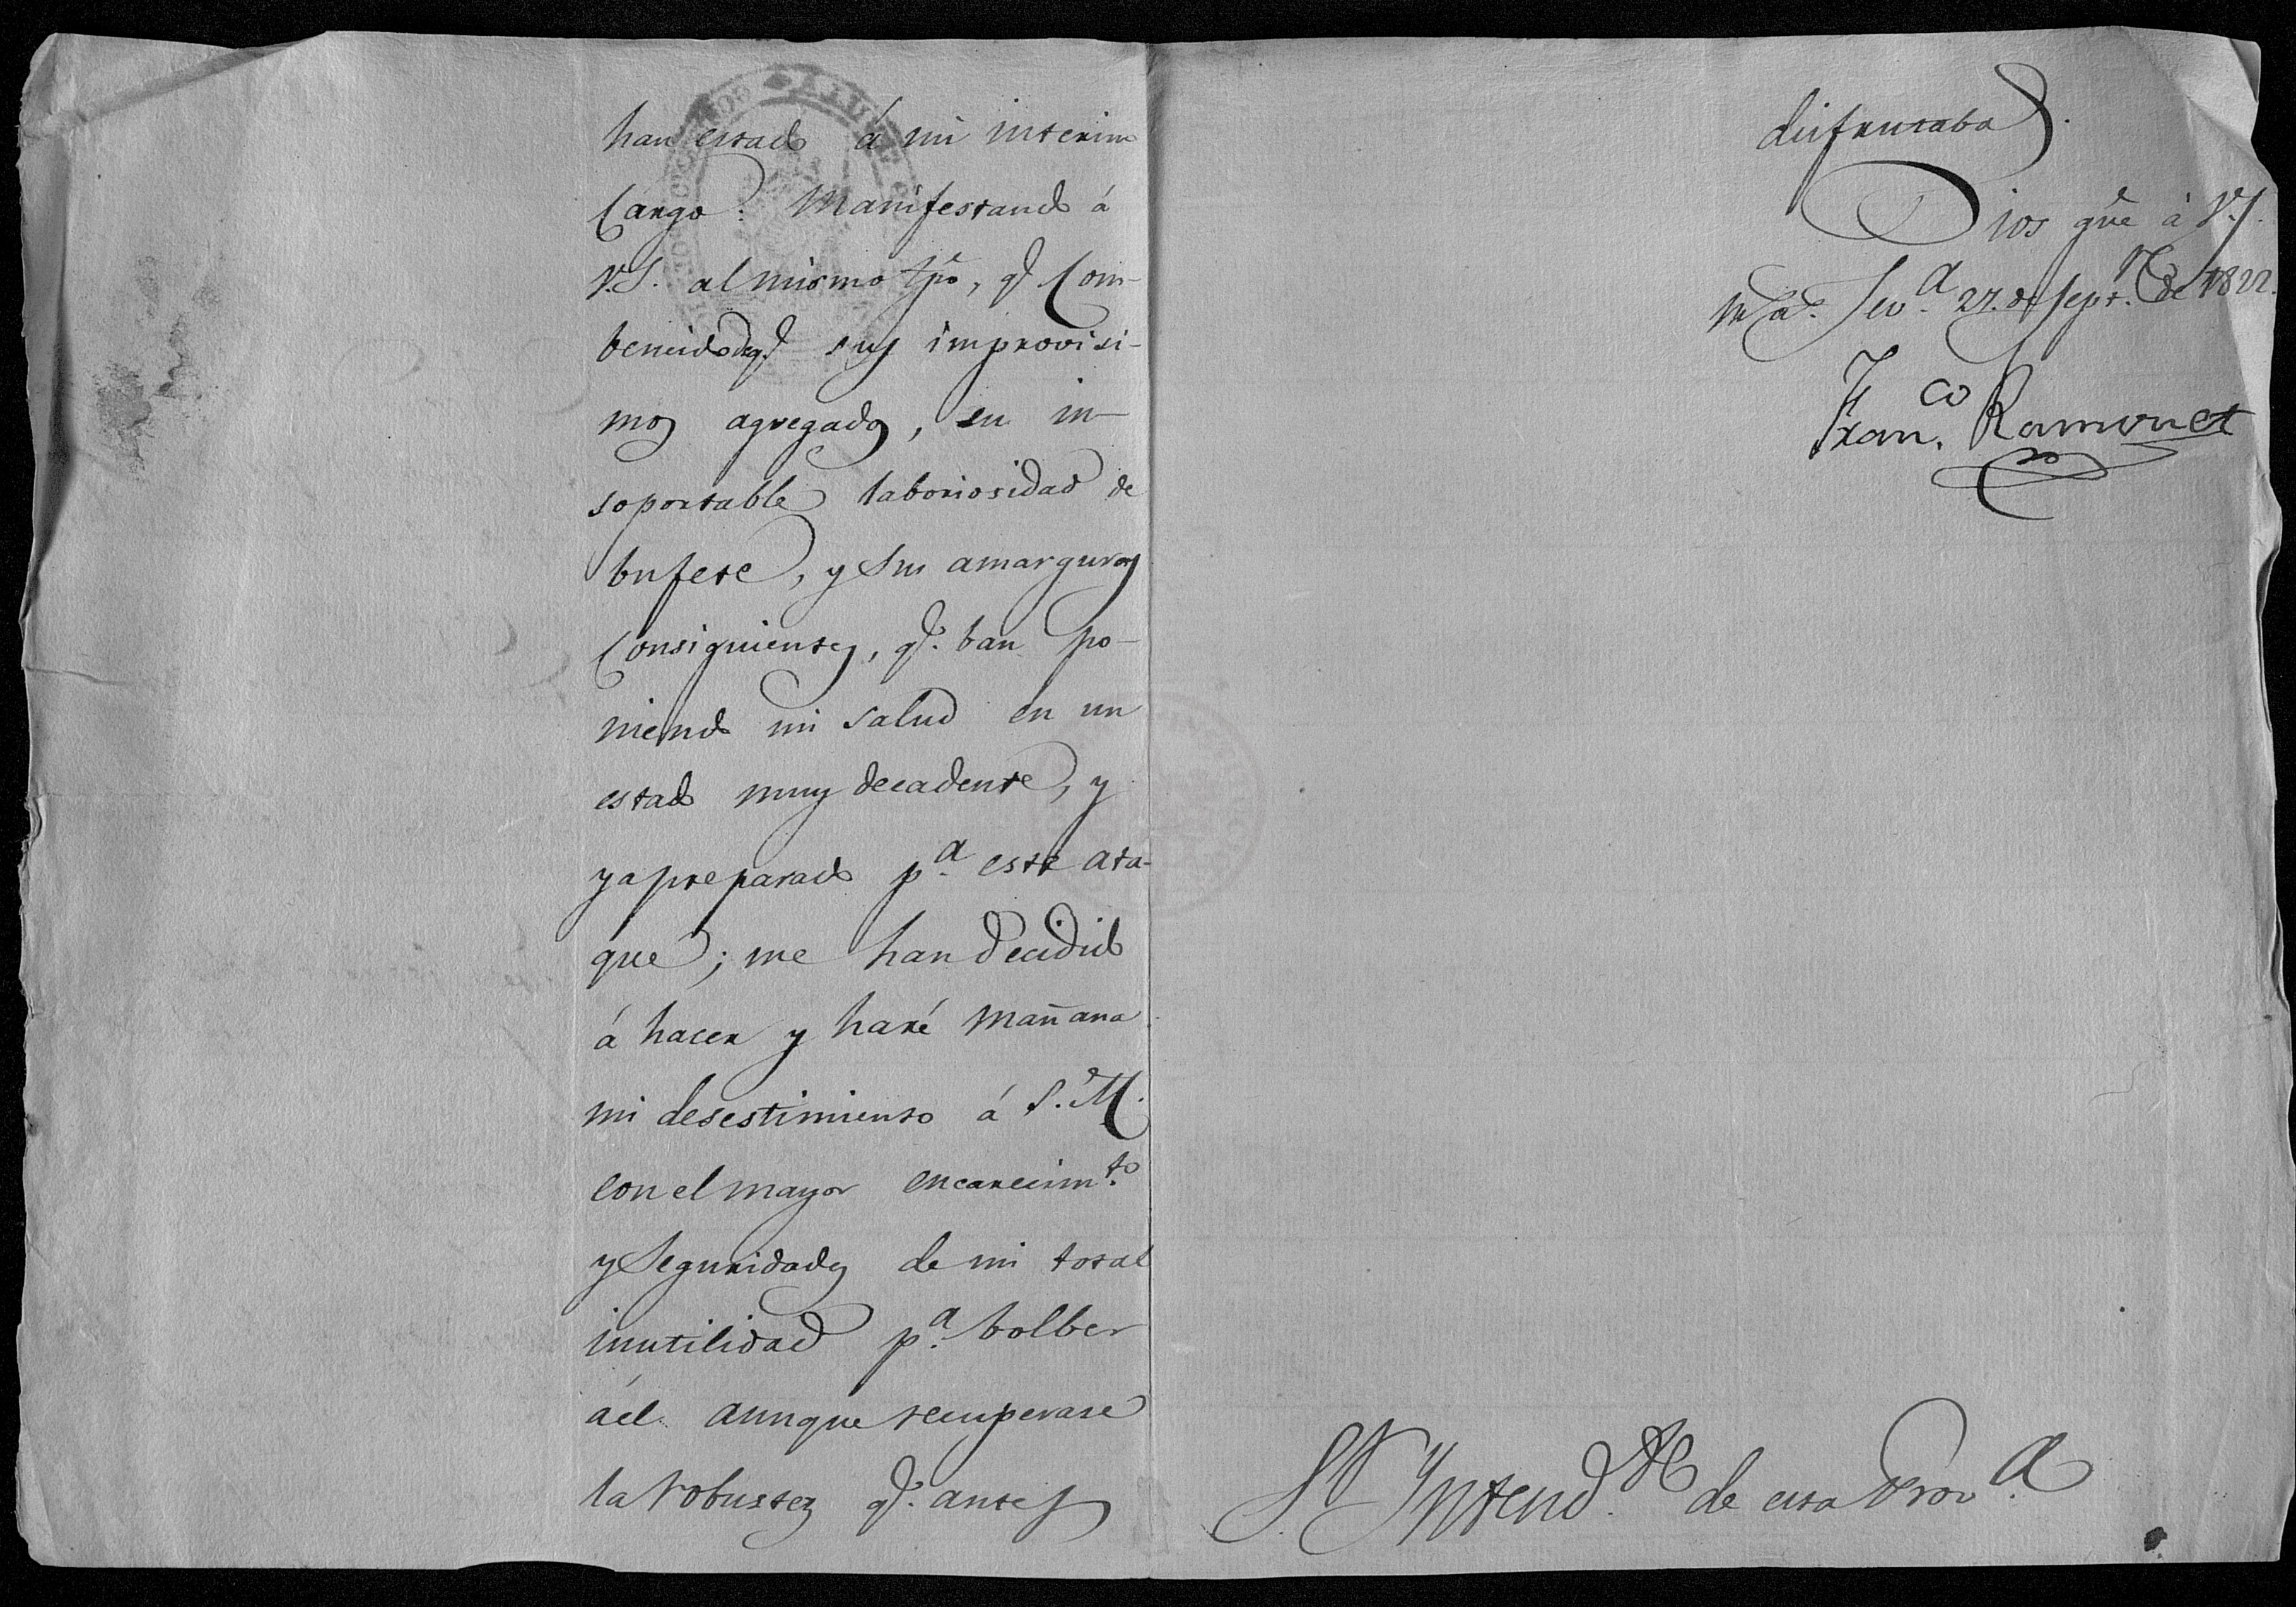 han estado á mi interino
Cargo: Manifestando á
V.S. al mismo tpo, q.e Com-
bencido de q.e sus improvisi-
mos agregados, su in-
soportable laboriosidad de
bufete, y sus amarguras
Consiguientes, q.e ban po-
niendo mi salud en un
estado muy decadente, y
ya preparado p.a este ata-
que; me han decidido
á hacer y haré mañana
mi desestimiento á S.M.
con el mayor encarecim.to
y Seguridades de mi total
inutilidad p.a bolber
á él aunque recuperase
la robustez q.e antes
disfrutaba.
Dios gũe á V.S.
m.s a.s Sev.a 27. de Sept.re de 1822.
Fran.co Ramonet
S.r Yntend.te de esta Prov.a